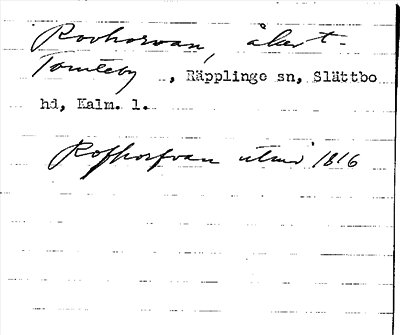 Rovhorvan, åker t.
Tomteby, Räpplinge sn, Slättbo
hd, Kalm. l.
Rofhorfvan utmr 1816